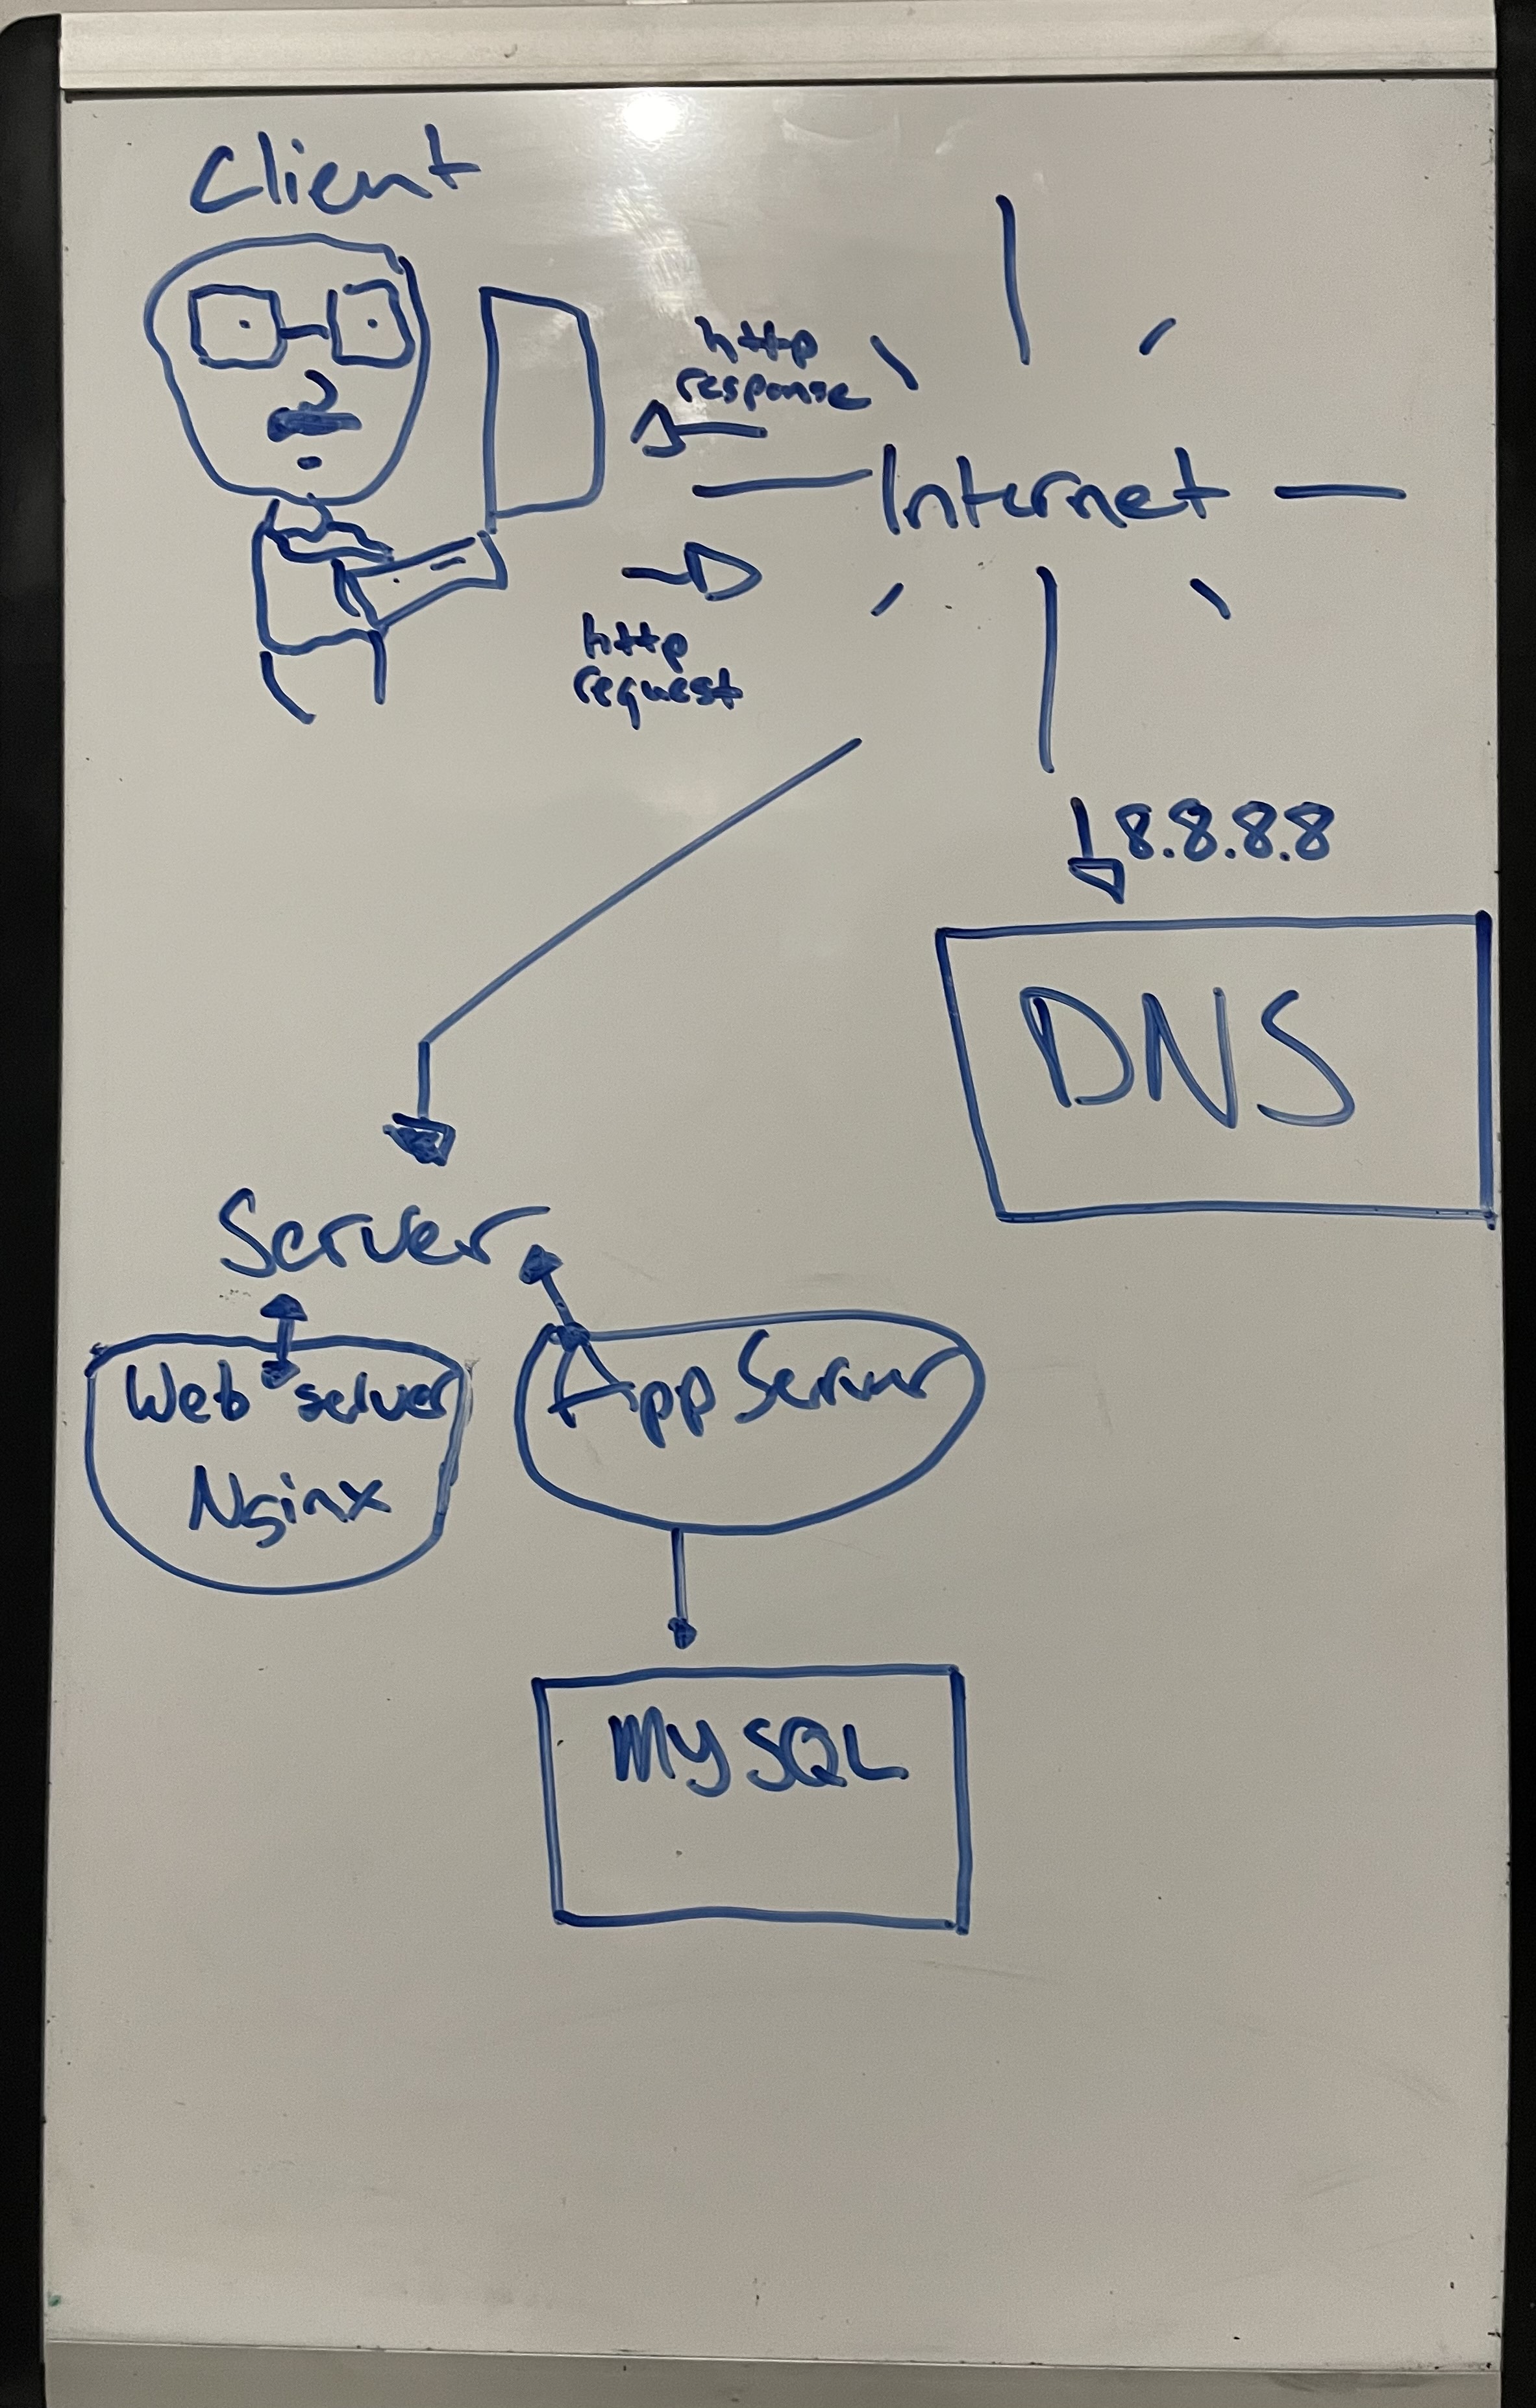 Client
http
response
Internet
http
request
8.8.8.8
DNS
Server
Web server
Nginx
App Server
MySQL